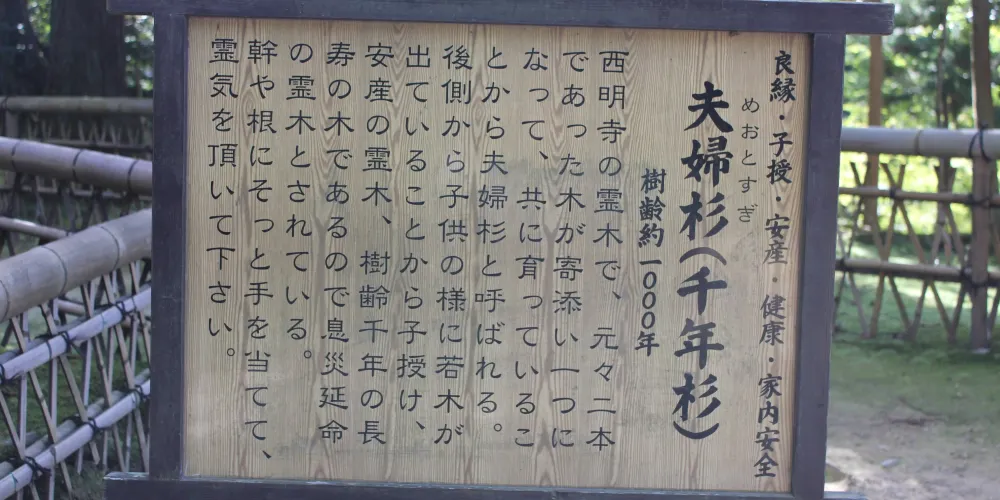 良縁・子授・安産・健康・家内安全
めおとすぎ
夫婦杉（千年杉）
樹齢約一〇〇〇年
西明寺の霊木で、元々二本
であった木が寄添い一つに
なって、共に育っているこ
とから夫婦杉と呼ばれる。
後側から子供の様に若木が
出ていることから子授け、
安産の霊木、樹齢千年の長
寿の木であるので息災延命
の霊木とされている。
幹や根にそっと手を当てて、
霊気を頂いて下さい。